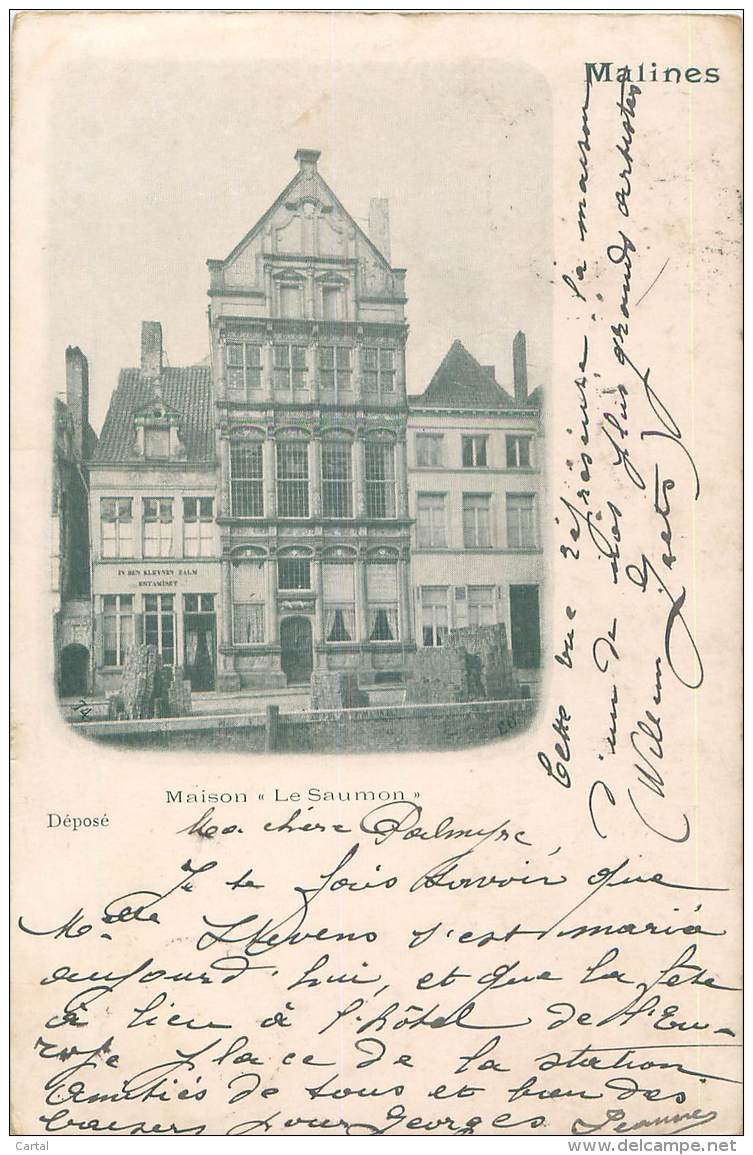 Malines
IN DEN KLEYNEN ZALM
ESTAMINET
Maison « Le Saumon »
Déposé
Ma chère Palmyre,
Je te fais savoir que
Melle Stevens s'est marié
aujourd'hui, et que la fête
a lieu à l'hôtel de l'Eu-
rope place de la station
Amitiés de tous et bien des
baisers pour Georges Jeanne
Cette vue représente la maison
d'un de nos plus grands artistes
(Willem Geets)
Cartal
www.delcampe.net